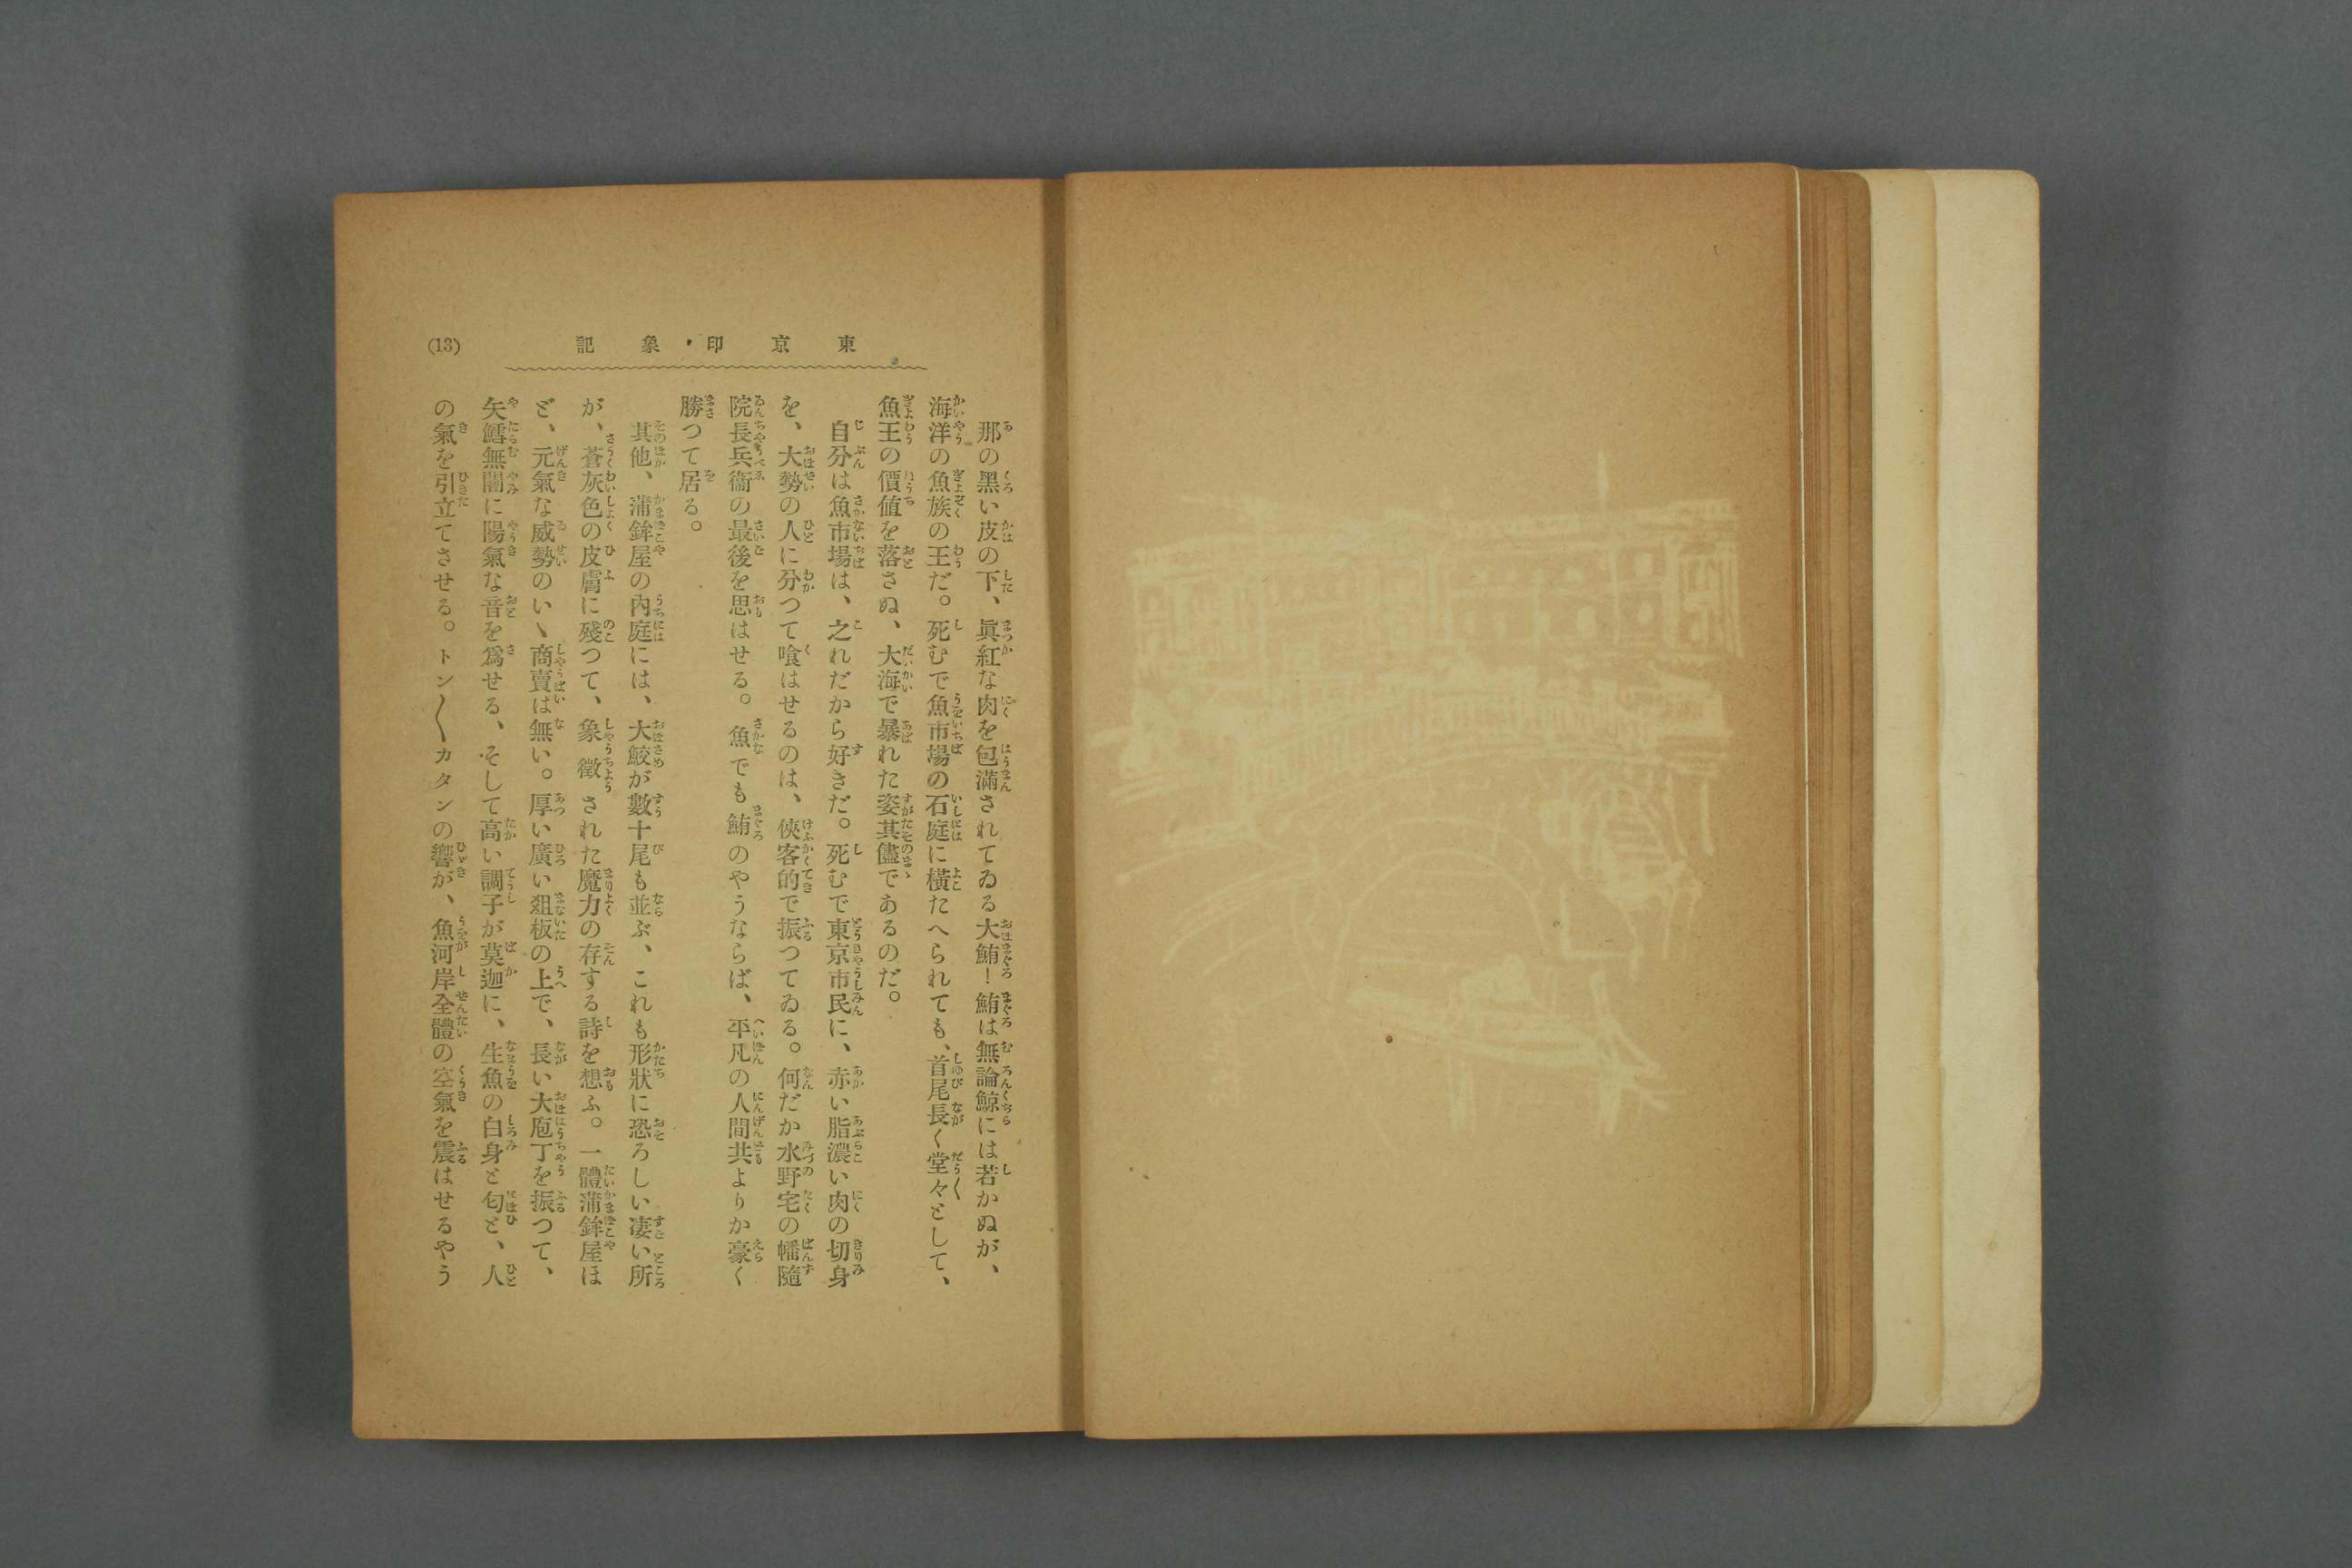 東京印象記
(13)
那の黑い皮の下、眞紅な肉を包滿されてゐる大鮪！鮪は無論鯨には若かぬが、
海洋の魚族の王だ。死むで魚市場の石庭に橫たへられても、首尾長く堂々として、
魚王の價値を落さぬ、大海で暴れた姿其儘であるのだ。
自分は魚市場は、之れだから好きだ。死むで東京市民に、赤い脂濃い肉の切身
を、大勢の人に分つて喰はせるのは、俠客的で振つてゐる。何だか水野宅の幡隨
院長兵衞の最後を思はせる。魚でも鮪のやうならば、平凡の人間共よりか豪く
勝つて居る。
其他、蒲鉾屋の內庭には、大鮫が數十尾も並ぶ、これも形狀に恐ろしい凄い所
が、蒼灰色の皮膚に殘つて、象徵された魔力の存する詩を想ふ。一體蒲鉾屋ほ
ど、元氣な威勢のいゝ商賣は無い。厚い廣い爼板の上で、長い大庖丁を振つて、
矢鱈無闇に陽氣な音を爲せる、そして高い調子が莫迦に、生魚の白身と匂と、人
の氣を引立てさせる。トン〳〵カタンの響が、魚河岸全體の空氣を震はせるやう